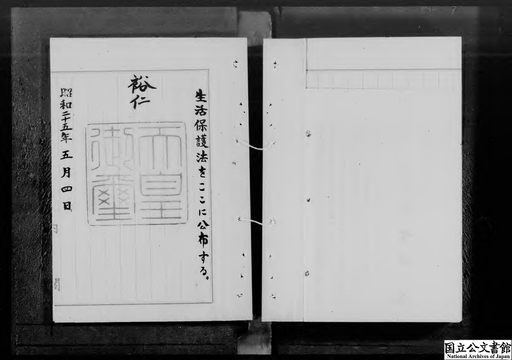 生活保護法をここに公布する。
裕仁
天皇御璽
昭和二十五年五月四日
国立公文書館
National Archives of Japan